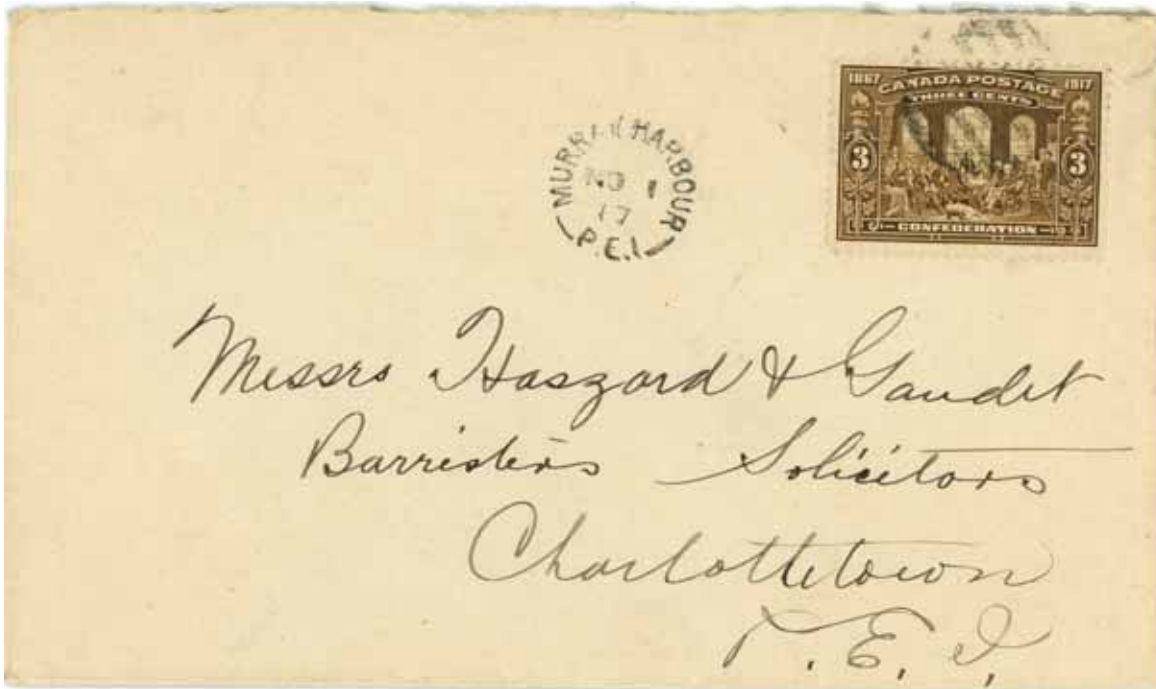 1867 CANADA POSTAGE 1917
THREE CENTS
3 3
CONFEDERATION
MURRAY HARBOUR
NO 1
17
P.E.I.
Messrs Haszard & Gaudet
Barristers Solicitors
Charlottetown
P. E. I.